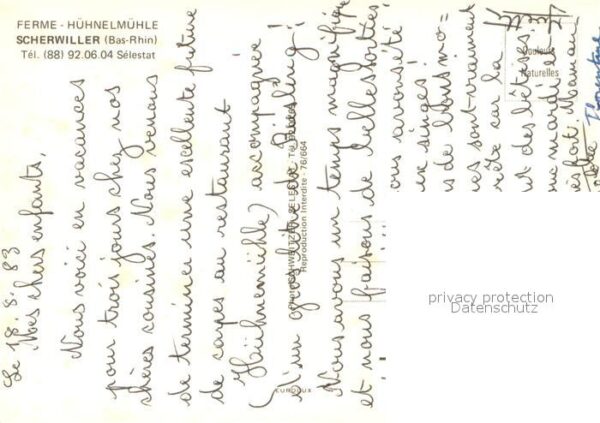 FERME - HÜHNELMÜHLE
SCHERWILLER (Bas-Rhin)
Tél. (88) 92.06.04 Sélestat
Le 18.8.83
Mes chers enfants,
Nous voici en vacances
pour trois jours chez nos
chères cousines. Nous venons
de terminer une excellente friture
de carpes au restaurant
(Hühnemühle) accompagnée
d'un gros litre de Riesling!
Nous avons un temps magnifique
et nous faisons de belles sorties.
ous avons été
singes
s de
es sont vraiment
car la
t des bêtises.
mardi
Couleurs
Naturelles
Reproduction Interdite - 76/664
EUROLUX
privacy protection
Datenschutz